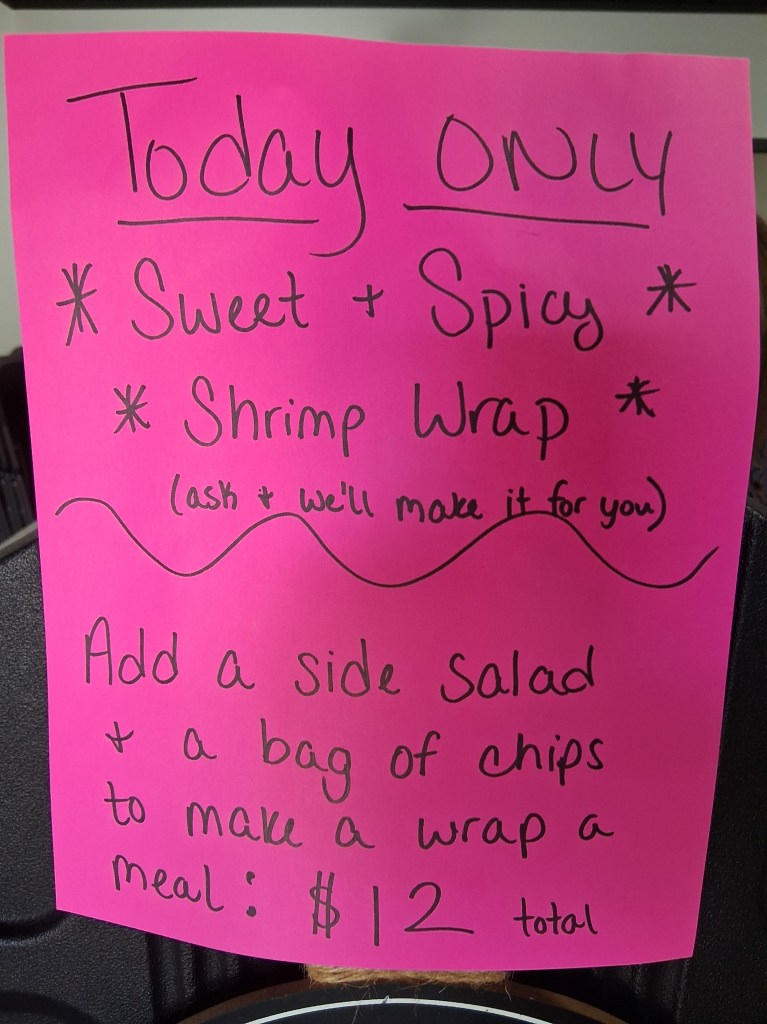 Today ONLY
* Sweet + Spicy *
* Shrimp Wrap *
(ask + we'll make it for you)
Add a side salad
+ a bag of chips
to make a wrap a
meal: $12 total